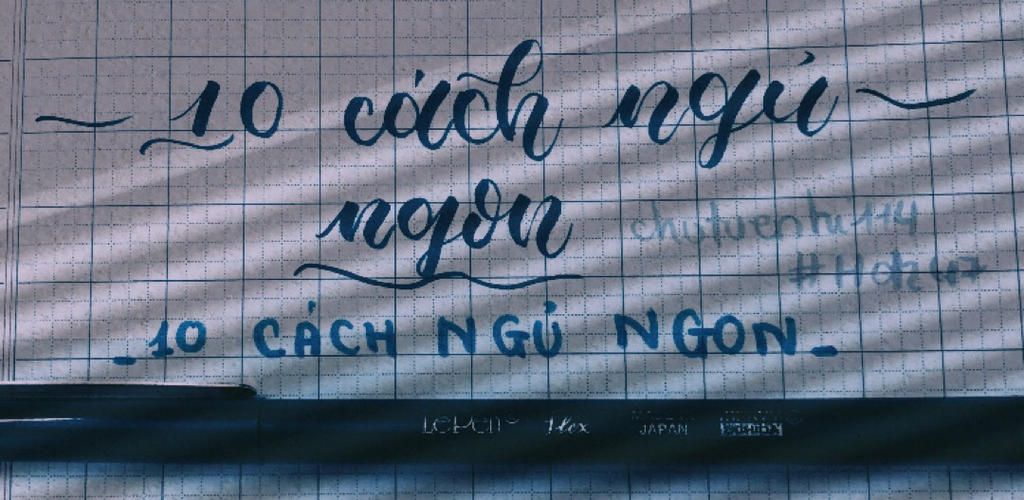 ~ 10 cách ngủ ~
ngon
chutuenhi114
_ 10 CÁCH NGỦ NGON _
LePen Flex JAPAN